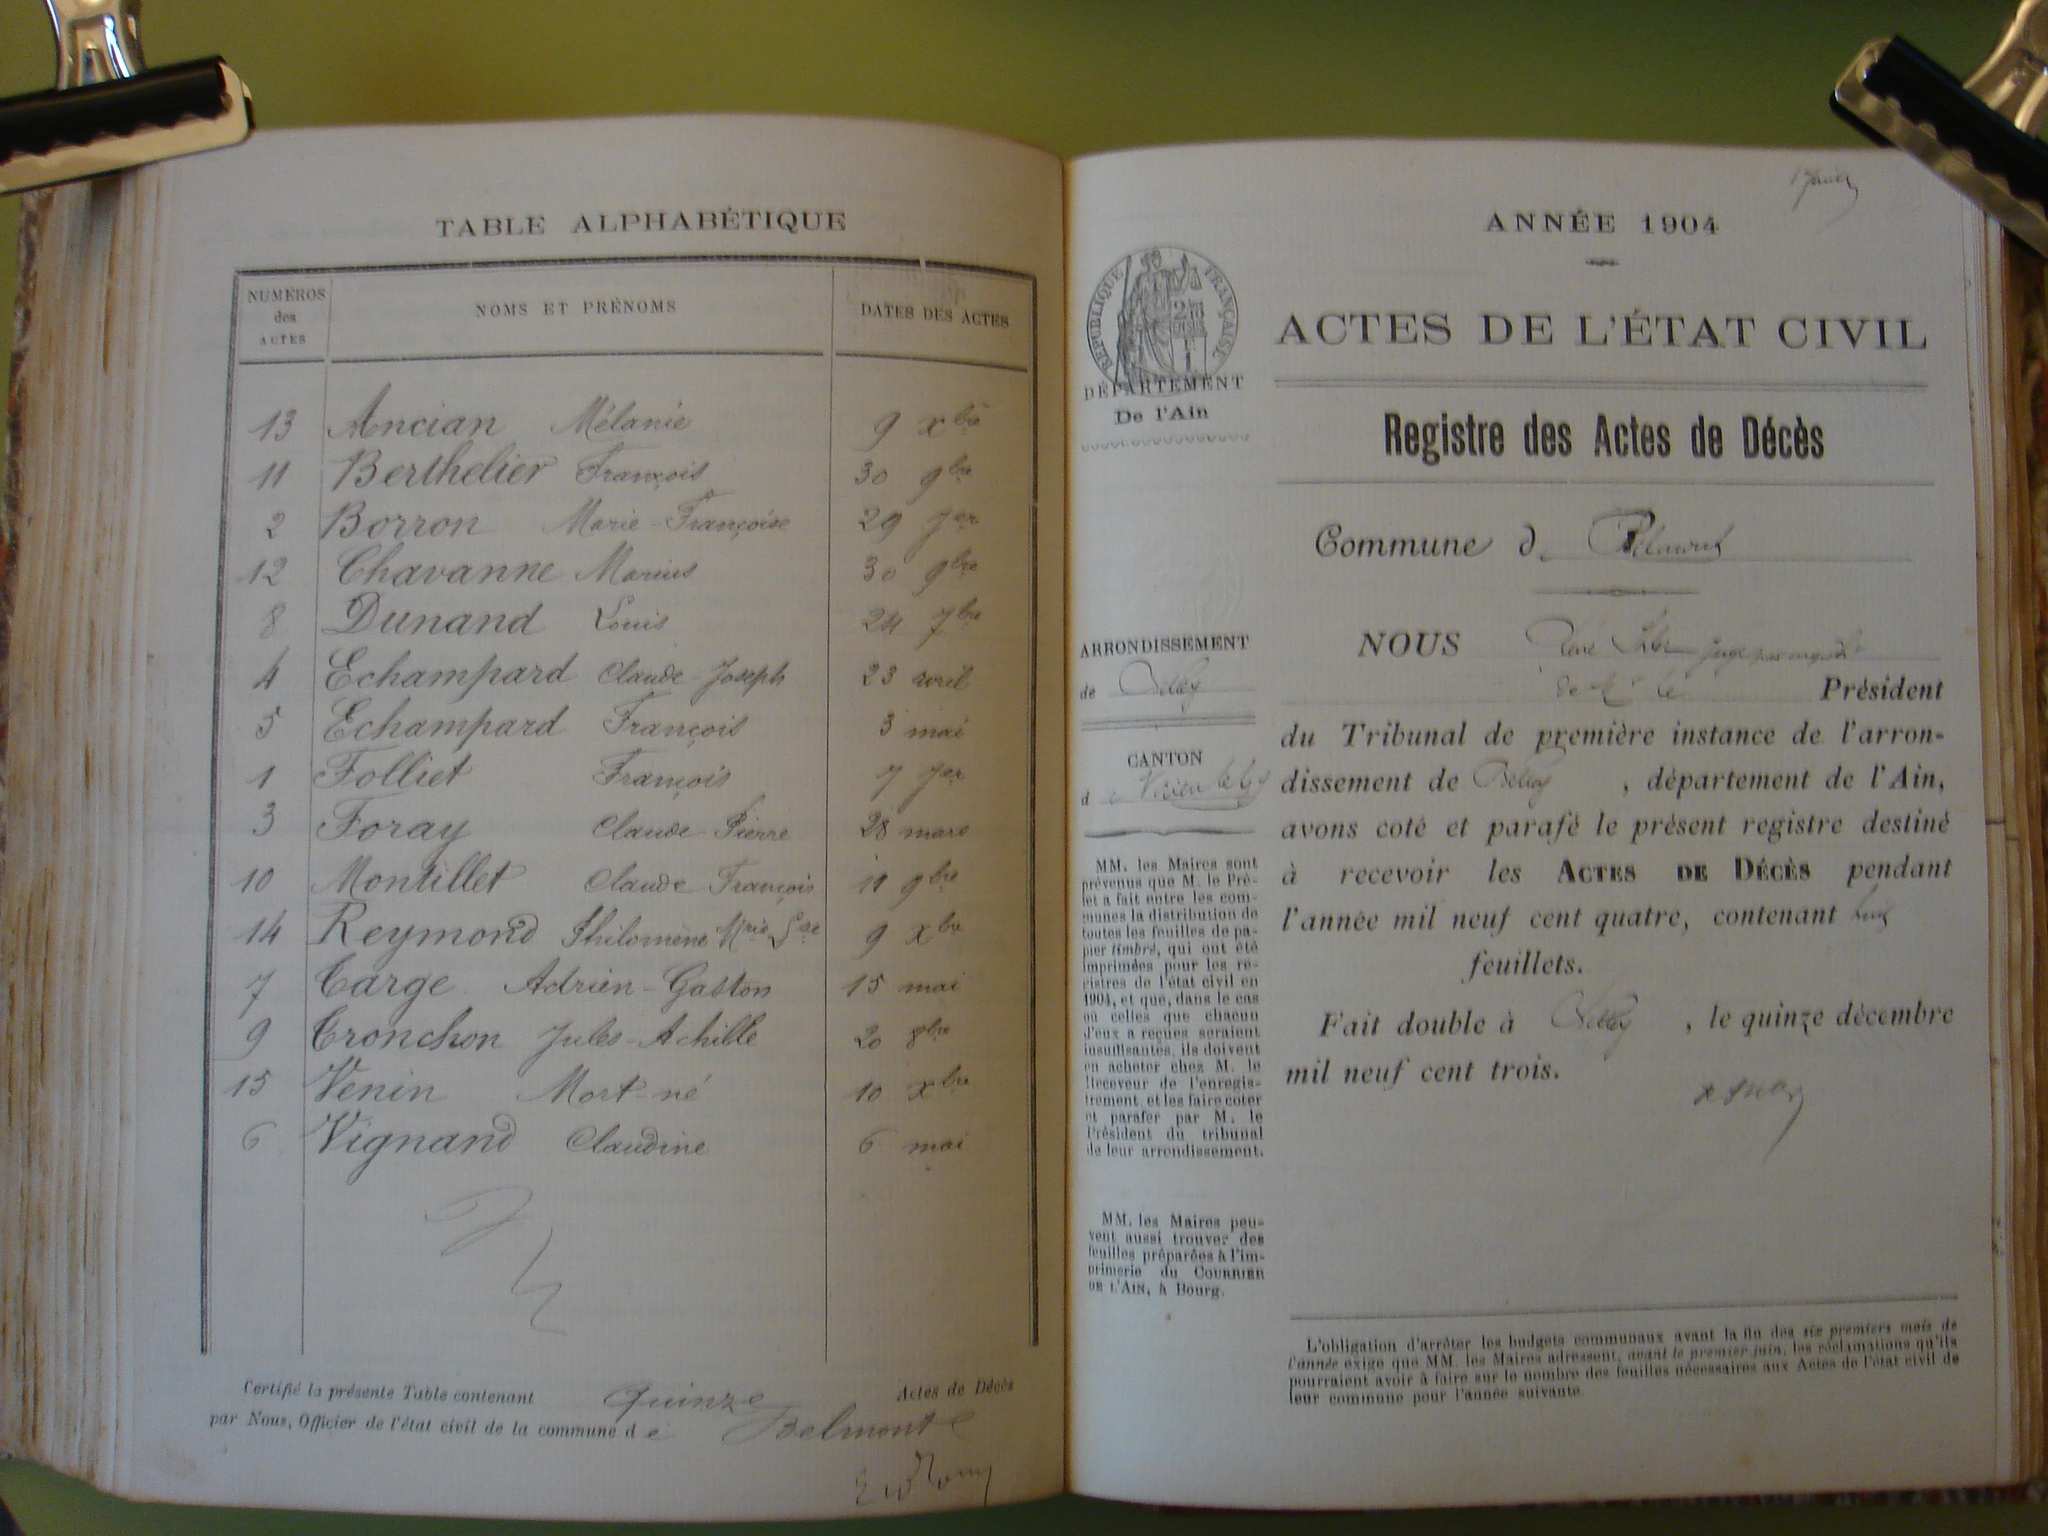 TABLE ALPHABÉTIQUE
NUMÉROS des ACTES NOMS ET PRÉNOMS DATES DES ACTES
13 Ancian Mélanie 9 xbre
11 Berthelier François 30 9bre
2 Borron Marie-Françoise 29 Jer
12 Chavanne Marius 30 9bre
8 Dunand Louis 24 7bre
4 Echampard Claude-Joseph 23 avril
5 Echampard François 3 mai
1 Folliet François 7 Jer
3 Foray Claude-Pierre 28 mars
10 Montillet Claude François 11 9bre
14 Reymond Philomène Mrie Lse 9 xbre
7 Targe Adrien-Gaston 15 mai
9 Tronchon Jules-Achille 20 8bre
15 Venin Mort-né 10 xbre
6 Vignand Claudine 6 mai
Certifié la présente Table contenant Quinze Actes de Décès
par Nous, Officier de l'état civil de la commune de Belmont
ANNÉE 1904
RÉPUBLIQUE FRANÇAISE
ACTES DE L'ÉTAT CIVIL
DÉPARTEMENT
De l'Ain
Registre des Actes de Décès
Commune de Belmont
ARRONDISSEMENT
de Belley
CANTON
de Virieu le Gd
MM. les Maires sont
prévenus que M. le Pré-
fet a fait entre les com-
munes la distribution de
toutes les feuilles de pa-
pier timbré, qui ont été
imprimées pour les re-
gistres de l'état civil en
1904, et que, dans le cas
où celles que chacun
d'eux a reçues seraient
insuffisantes, ils doivent
en acheter chez M. le
Receveur de l'enregis-
trement, et les faire coter
et parafer par M. le
Président du tribunal
de leur arrondissement.
MM. les Maires peu-
vent aussi trouver des
feuilles préparées à l'im-
primerie du COURRIER
DE L'AIN, à Bourg.
NOUS René
de Mr le Président
du Tribunal de première instance de l'arron-
dissement de Belley, département de l'Ain,
avons coté et parafé le présent registre destiné
à recevoir les ACTES DE DÉCÈS pendant
l'année mil neuf cent quatre, contenant huit
feuillets.
Fait double à Belley, le quinze décembre
mil neuf cent trois.
L'obligation d'arrêter les budgets communaux avant la fin des six premiers mois de
l'année exige que MM. les Maires adressent, avant le premier juin, les réclamations qu'ils
pourraient avoir à faire sur le nombre des feuilles nécessaires aux Actes de l'état civil de
leur commune pour l'année suivante.